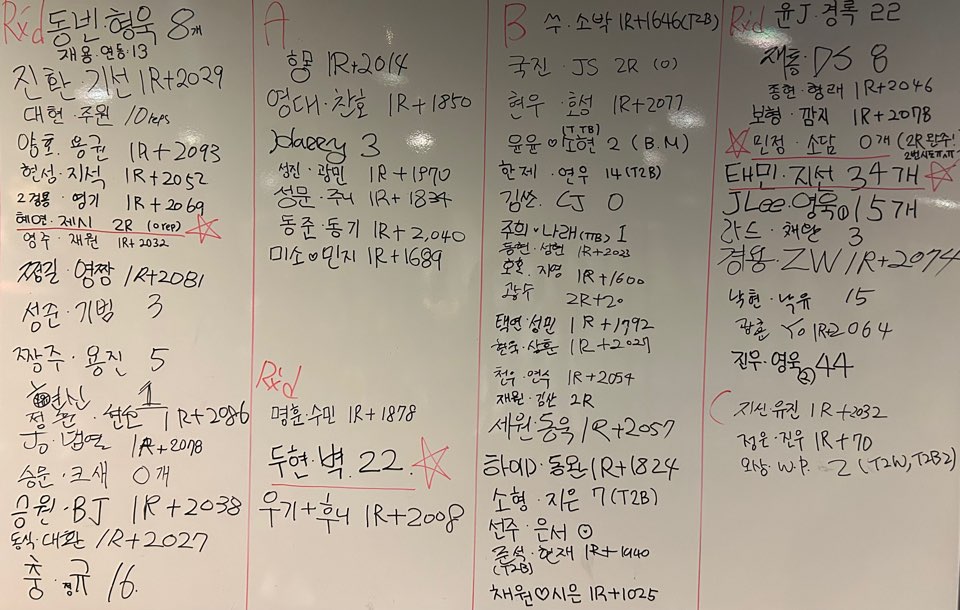 Rx'd 동빈·형욱 8개
재용·연동·13
진환·기선 1R+2029
대현·주원 10reps
양호·용권 1R+2093
현성·지석 1R+2052
2검용·영기 1R+2069
혜연·제시 2R (0rep)
영주·재원 1R+2032
찡길·영짱 1R+2081
성준·기범 3
짱주·용진 5
1
1R+2086
범연 1R+2078
승문·크새 0개
응원·BJ 1R+2038
동식·대환 1R+2027
충·규 16
A
1R+2014
영대·찬호 1R+1850
3
성진·광민 1R+1970
성문·주니 1R+1834
동준·동기 1R+2,040
미소♡민지 1R+1689
Rx'd
명훈·수민 1R+1878
두현·벽 22.
우기+후니 1R+2008
B 쑤·소박 1R+1646(T2B)
국진·JS 2R (0)
현우·효성 1R+2077
윤윤♡소현 2 (T.TB) (B.M)
한제·연우 14(T2B)
김쓰·CJ 0
주희♡나래(TTB) 1
동현·성현 1R+2023
호호·지영 1R+1600
광수 2R+20
택연·성민 1R+1792
현욱·상훈 1R+2027
천우·연수 1R+2054
재원·김산 2R
세원·동욱 1R+2057
하이D·동완 1R+1824
소형·지은 7(T2B)
선주·은서 ⊙
준석·현재 1R+1440
(T2B)
채원♡시은 1R+1025
Rx'd 윤J·경록 22
재홍·DS 8
종현·형래 1R+2046
보형·깜지 1R+2078
민정·소담 0개 (2R완주!
2번시도ㅠ,ㅠ)
태민·지선 34개
JLee·영욱① 15개
간드·채완 3
경용·ZW 1R+2074
낙현·낙유 15
광훈 Yo 1R+2064
진우·영욱② 44
C 지선·유진 1R+2032
정은·진우 1R+70
오상·W.P. 2 (T2W, T2B2)